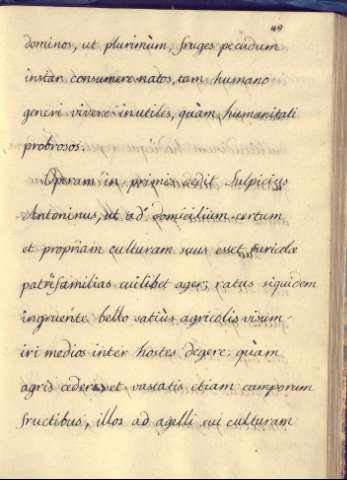 49
dominos, ut plurimùm, fruges pecudum
instar consumere natos, tam humano
generi vivere inutiles, quàm humanitati
probrosos.
Operam in primis dedit Sulpicius
Antoninus, ut ad domicilium certum
et propriam culturam suus esset ruricolæ
patrifamilias cuilibet ager, ratus siquidem
ingruente bello satiùs agricolis visum
iri medios inter hostes degere, quàm
agris cedere et vastatis etiam camporum
fructibus, illos ad agelli sui culturam